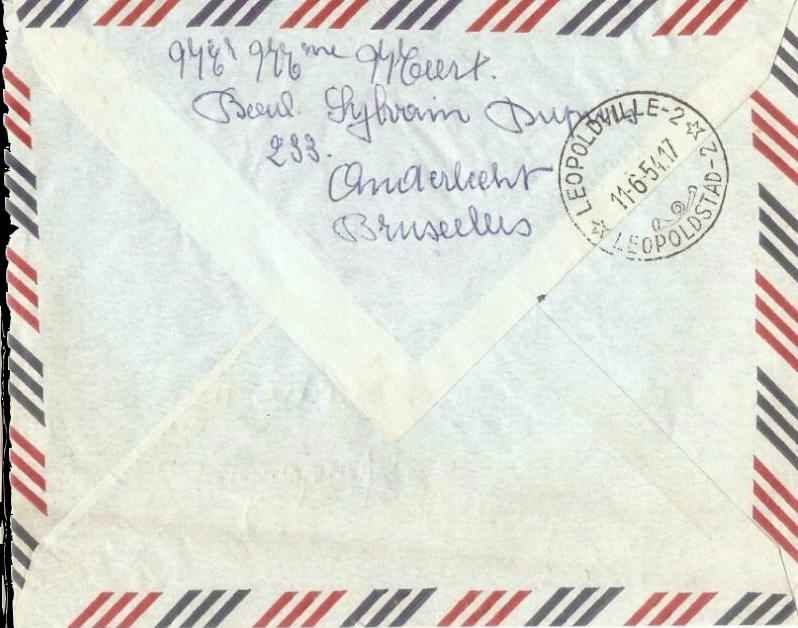 Mr Mme Meert.
Boul. Sylvain Dupuis
233.
Anderlecht
Bruxelles
LEOPOLDVILLE-2
11-6-54.17
LEOPOLDSTAD-2